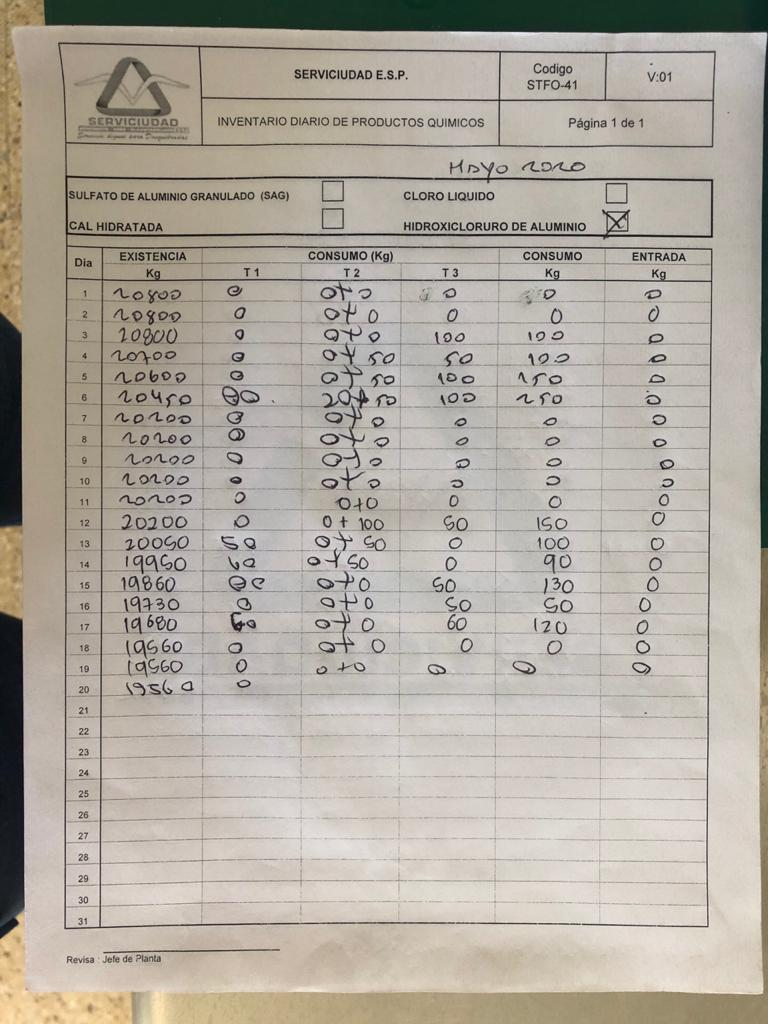 SERVICIUDAD
SERVICIUDAD E.S.P.
Codigo
STFO-41
V:01
INVENTARIO DIARIO DE PRODUCTOS QUIMICOS
Página 1 de 1
Mayo 2020
SULFATO DE ALUMINIO GRANULADO (SAG)
CLORO LIQUIDO
CAL HIDRATADA
HIDROXICLORURO DE ALUMINIO X
Dia EXISTENCIA CONSUMO (Kg) CONSUMO ENTRADA
Kg T 1 T 2 T 3 Kg Kg
1 20800 0 0+0 0 0 0
2 20800 0 0+0 0 0 0
3 20800 0 0+0 100 100 0
4 20700 0 0+50 50 100 0
5 20600 0 0+50 100 150 0
6 20450 50 100 250 0
7 20200 0 0+0 0 0 0
8 20200 0 0+0 0 0 0
9 20200 0 0+0 0 0 0
10 20200 0 0+0 0 0 0
11 20200 0 0+0 0 0 0
12 20200 0 0+100 50 150 0
13 20050 50 0+50 0 100 0
14 19950 0+50 0 90 0
15 19860 0+0 50 130 0
16 19730 0 0+0 50 50 0
17 19680 0+0 60 120 0
18 19560 0 0+0 0 0 0
19 19560 0 0+0 0 0 0
20 19560 0
21
22
23
24
25
26
27
28
29
30
31
Revisa : Jefe de Planta